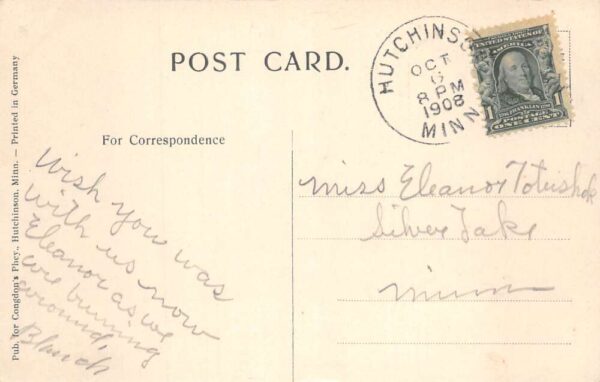 POST CARD.
HUTCHINSON
OCT
6
8 PM
1908
MINN
UNITED STATES OF
AMERICA
1 FRANKLIN 1
POSTAGE
ONE CENT
For Correspondence
Wish you was
with us now
Eleanor as we
are buming
around,
Blanch
Miss Eleanor Totushek
Silver Lake
Minn
Pub. for Congdon's Phcy., Hutchinson, Minn. — Printed in Germany